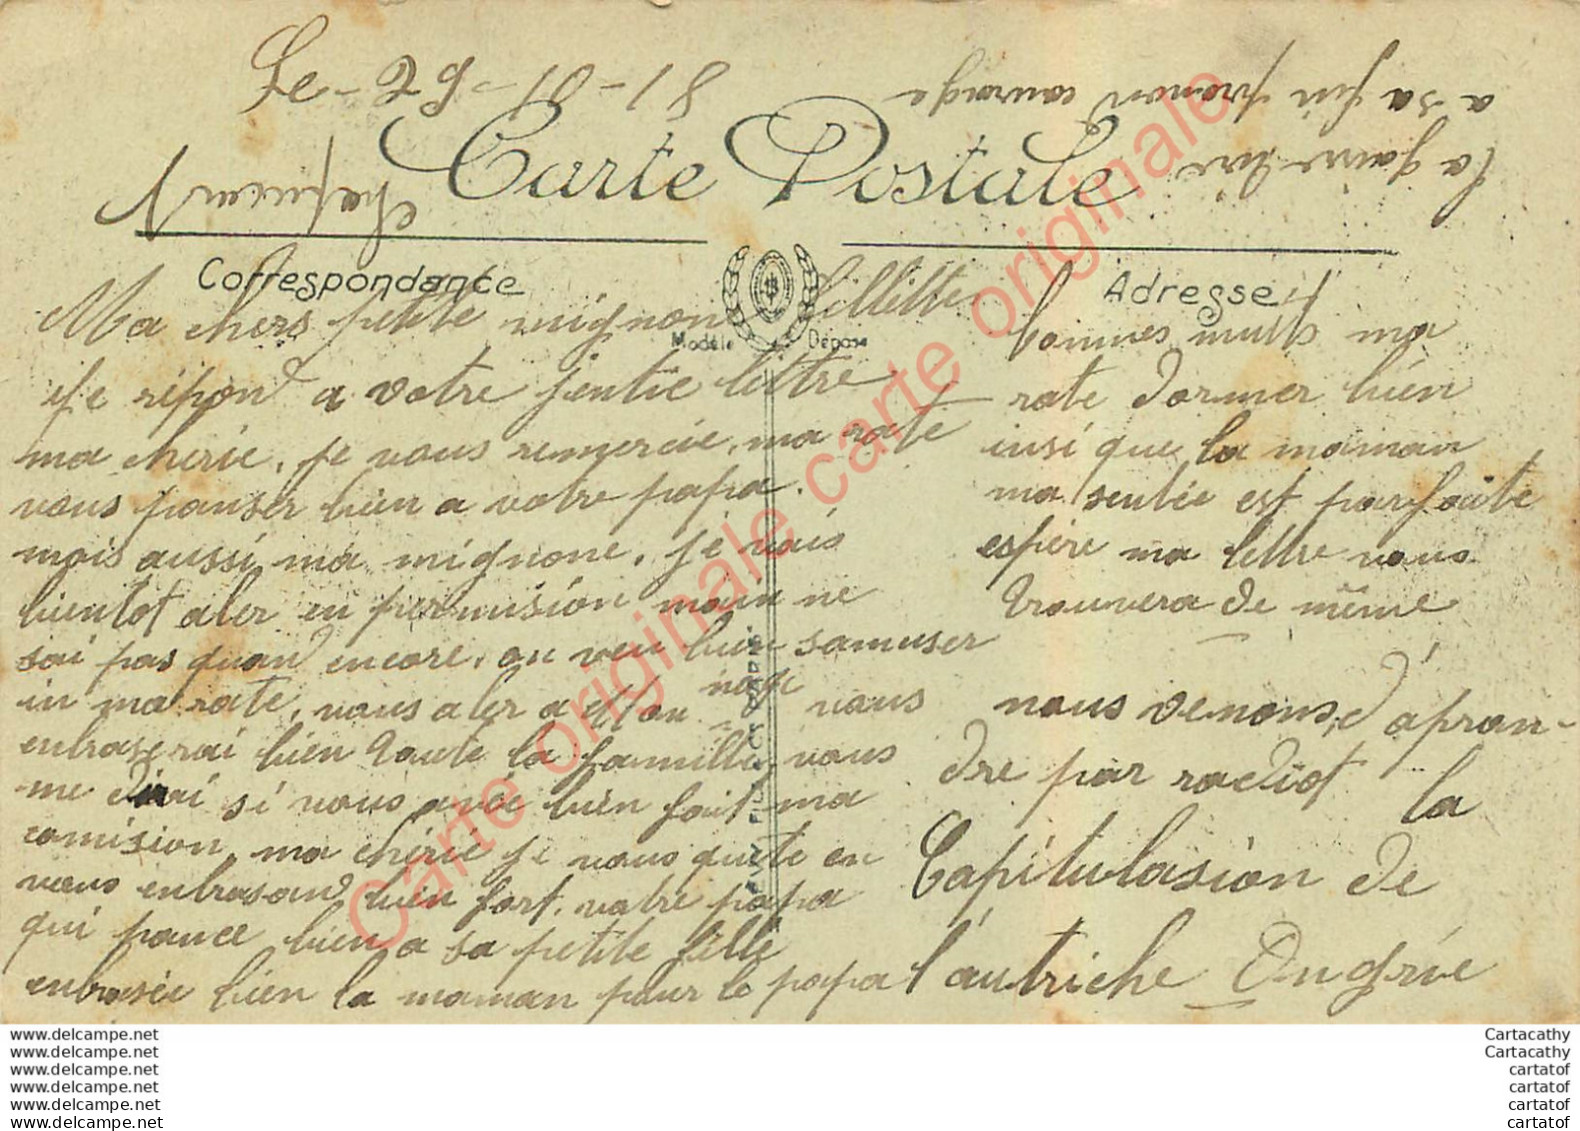 Le - 29 - 10 - 18
Carte Postale
Correspondance
Adresse
Modèle Déposé
Ma chers petite mignon fillette
je répond a votre jentie lettre
ma cherie, je vous remercie, ma rate
vous panser bien a votre papa.
mais aussi ma mignone, je vais
bientot aler en permision mais ne
sai pas quand encore, on veu bien samuser
in ma rate, vous aler a non vous
enbraserai bien toute la famille, vous
me dirai si vous avée bien fait ma
comision, ma chérie je vous quite en
vous enbrasand bien fort, votre papa
qui pance bien a sa petite fille
enbrasée bien la maman pour le papa
bonnes nuits ma
rate dormer bien
insi que la maman
ma sentée est parfaite
espère ma lettre vous
trouvera de même
nous venons d'apran-
dre par radiot la
Capitulasion de
l'autriche Ongrie
la gaire tire
a sa fin prenon courage
Carte originale carte originale
www.delcampe.net
www.delcampe.net
www.delcampe.net
www.delcampe.net
www.delcampe.net
www.delcampe.net
Cartacathy
Cartacathy
cartatof
cartatof
cartatof
cartatof